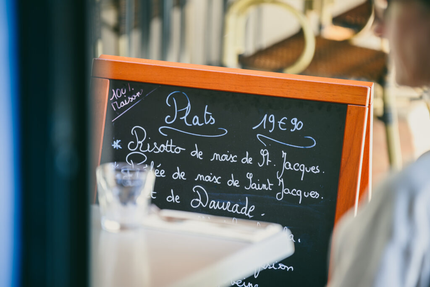 100% Maison
Plats 19€90
* Risotto de noix de St. Jacques.
de noix de Saint Jacques.
de Daurade.